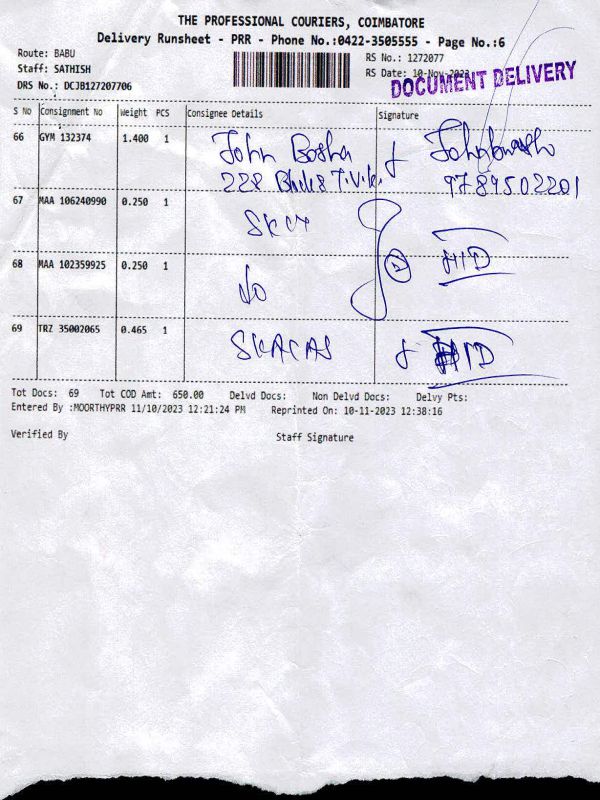 THE PROFESSIONAL COURIERS, COIMBATORE
Delivery Runsheet - PRR - Phone No.:0422-3505555 - Page No.:6
Route: BABU
Staff: SATHISH
DRS No.: DCJB127207706
RS No.: 1272077
RS Date: 10-Nov-2023
DOCUMENT DELIVERY
S No Consignment No Weight PCS Consignee Details Signature
66 GYM 132374 1.400 1 John Bosha
228 9789502201
67 MAA 106240990 0.250 1
68 MAA 102359925 0.250 1 HTD
69 TRZ 35002065 0.465 1 SKACAS
Tot Docs: 69 Tot COD Amt: 650.00 Delvd Docs: Non Delvd Docs: Delvy Pts:
Entered By :MOORTHYPRR 11/10/2023 12:21:24 PM Reprinted On: 10-11-2023 12:38:16
Verified By Staff Signature